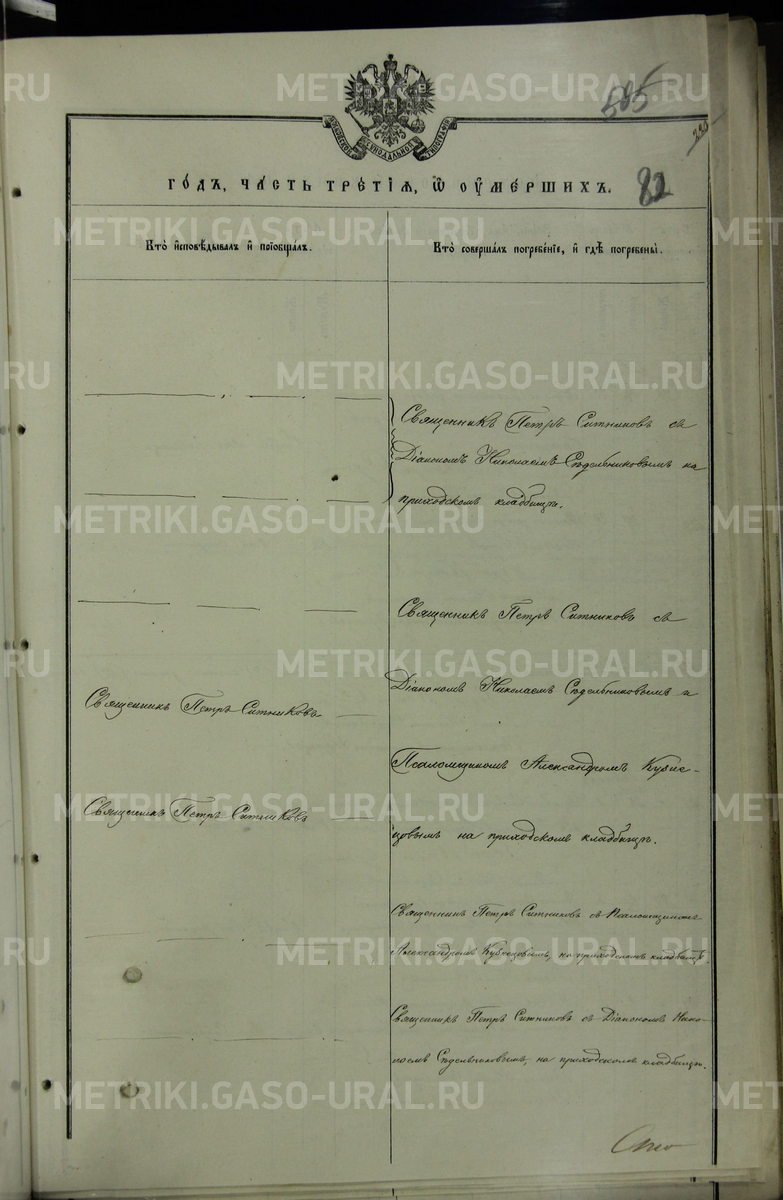 METRIKI.GASO-URAL.RU
585
МОСКОВСКОЙ СѴНОДАЛЬНОЙ ТИПОГРАФІИ
ГОДЪ, ЧАСТЬ ТРЕТІЯ, Ѽ ОУМЕРШИХЪ.
82
Кто исповѣдывалъ и пріобщалъ.
Кто совершалъ погребеніе, и гдѣ погребены.
Священникъ Петръ Ситниковъ съ
Діакономъ Николаемъ Сѣдельниковымъ на
приходскомъ кладбищѣ.
Священникъ Петръ Ситниковъ съ
Діакономъ Николаемъ Сѣдельниковымъ и
Священникъ Петръ Ситниковъ
Псаломщикомъ Александромъ
Священникъ Петръ Ситниковъ
на приходскомъ кладбищѣ.
Священникъ Петръ Ситниковъ съ Псаломщикомъ
Александромъ на приходскомъ кладбищѣ.
Священникъ Петръ Ситниковъ съ Діакономъ Нико-
лаемъ Сѣдельниковымъ, на приходскомъ кладбищѣ.